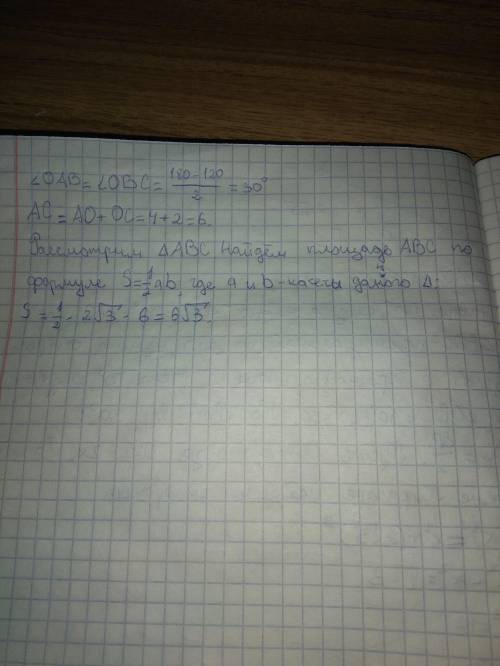 ∠OAB = ∠OBC = (180-120)/2 = 30°
AC = AO + OC = 4 + 2 = 6.
Рассмотрим ΔABC Найдём площадь ABC по
формуле S = 1/2 ab, где a и b - катеты данного Δ:
S = 1/2 · 2√3 · 6 = 6√3.